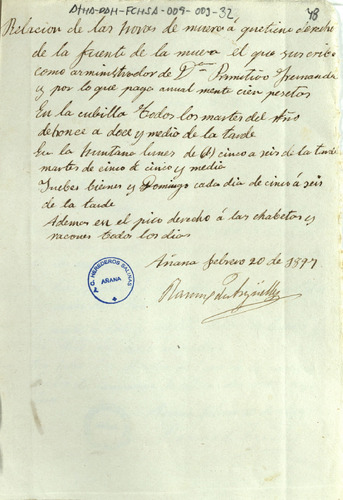 AHA-DAH-FCHSA-009-003-32
48
Relacion de las horas de muera á que tiene derecho
de la fuente de la muera el que suscribe
como arministrador de D.ⁿ Primitivo Hernando
y por lo que paga anual mente cien pesetas
En la cubilla todos los martes del año
de honce a doce y medio de la tarde
En la Hontana lunes de cinco a seis de la tarde
martes de cinco á cinco y media
Juebes biernes y Domingo cada dia de cinco á seis
de la tarde
Ademas en el pico derecho á las chabetas y
racones todos los dias
Añana febrero 20 de 1897
A. C. HEREDEROS SALINAS
AÑANA